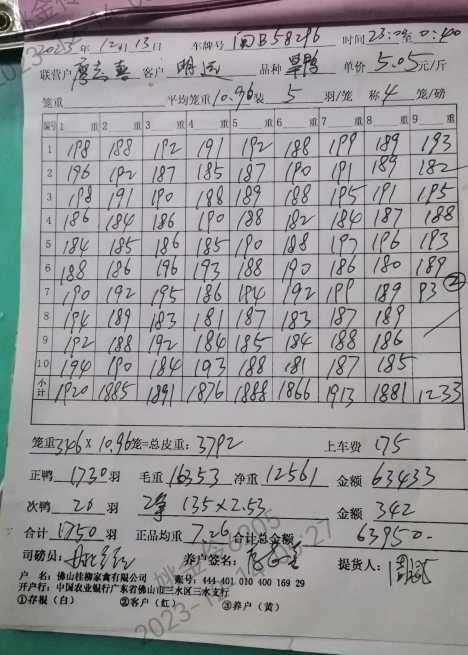 2023年12月13日 车牌号 B58296 时间23:00至0:400
联营户 客户 明远 品种 单价5.05元/斤
笼重 平均笼重10.96装5羽/笼 称4笼/磅
编号 1 重 2 重 3 重 4 重 5 重 6 重 7 重 8 重 9 重
1 198 188 192 191 192 188 199 189 193
2 196 192 187 185 187 190 191 189 182
3 198 191 190 188 189 188 195 191 195
4 186 184 186 190 188 182 184 187 188
5 184 185 186 185 190 188 197 196 193
6 188 186 196 193 188 190 186 180 189
7 190 192 195 186 194 192 199 189 93 ②
8 194 189 183 181 187 183 187 189
9 192 188 192 184 185 184 188 186
10 194 190 184 193 188 181 187 185
小计 1920 1885 1891 1876 1888 1866 1913 1881 1233
笼重346×10.96笼=总皮重:3792 上车费 175
正鸭1730羽 毛重16353 净重12561 金额63433
次鸭20羽 135×2.53 金额342
合计1750羽 正品均重7.26 合计总金额63950-
司磅员: 养户签名: 提货人:
户 名:佛山桂柳家禽有限公司 账号:444 401 010 400 169 29
开户行:中国农业银行广东省佛山市三水区三水支行
①存根(白) ②客户(红) ③养户(黄)